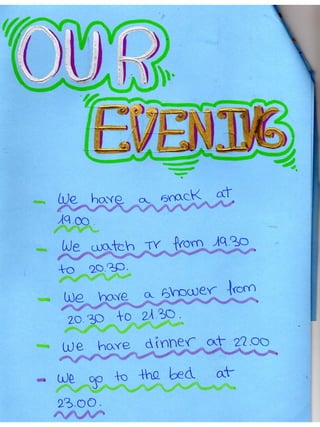 OUR
EVENING
- We have a snack at
19.00
- We watch TV from 19.30
to 20.30.
- We have a shower from
20.30 to 21.30.
- We have dinner at 22.00
- We go to the bed at
23.00.